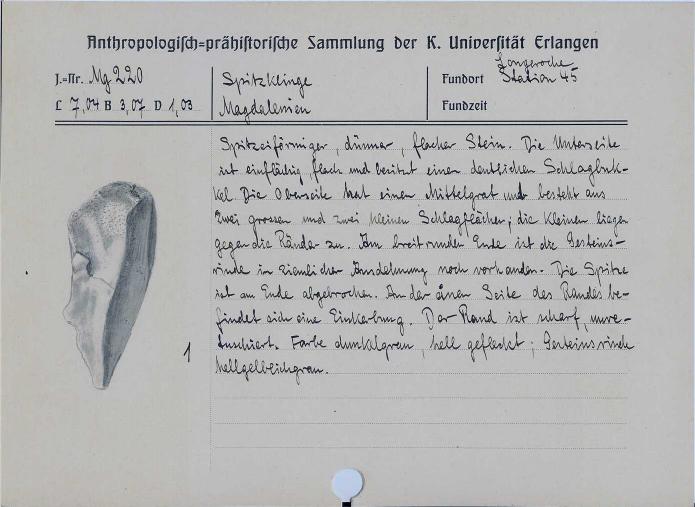 Anthropologisch=prähistorische Sammlung der K. Universität Erlangen
J.=Nr. Mg 220
L 7,04 B 3,07 D 1,03
Spitzklinge
Magdalenien
Fundort Longeroche
Station 45
Fundzeit
Spitzeiförmiger, dünner, flacher Stein. Die Unterseite
ist einflächig, flach und besitzt einen deutlichen Schlagbuk-
kel. Die Oberseite hat einen Mittelgrat und besteht aus
zwei grossen und zwei kleinen Schlagflächen; die kleinen liegen
gegen die Ränder zu. Am breitrunden Ende ist die Gesteins-
rinde in ziemlicher Ausdehnung noch vorhanden. Die Spitze
ist am Ende abgebrochen. An der einen Seite des Randes be-
findet sich eine Einkerbung. Der Rand ist scharf, unre-
tuschiert. Farbe dunkelgrau, hell gefleckt; Gesteinsrinde
hellgelblichgrau.
1